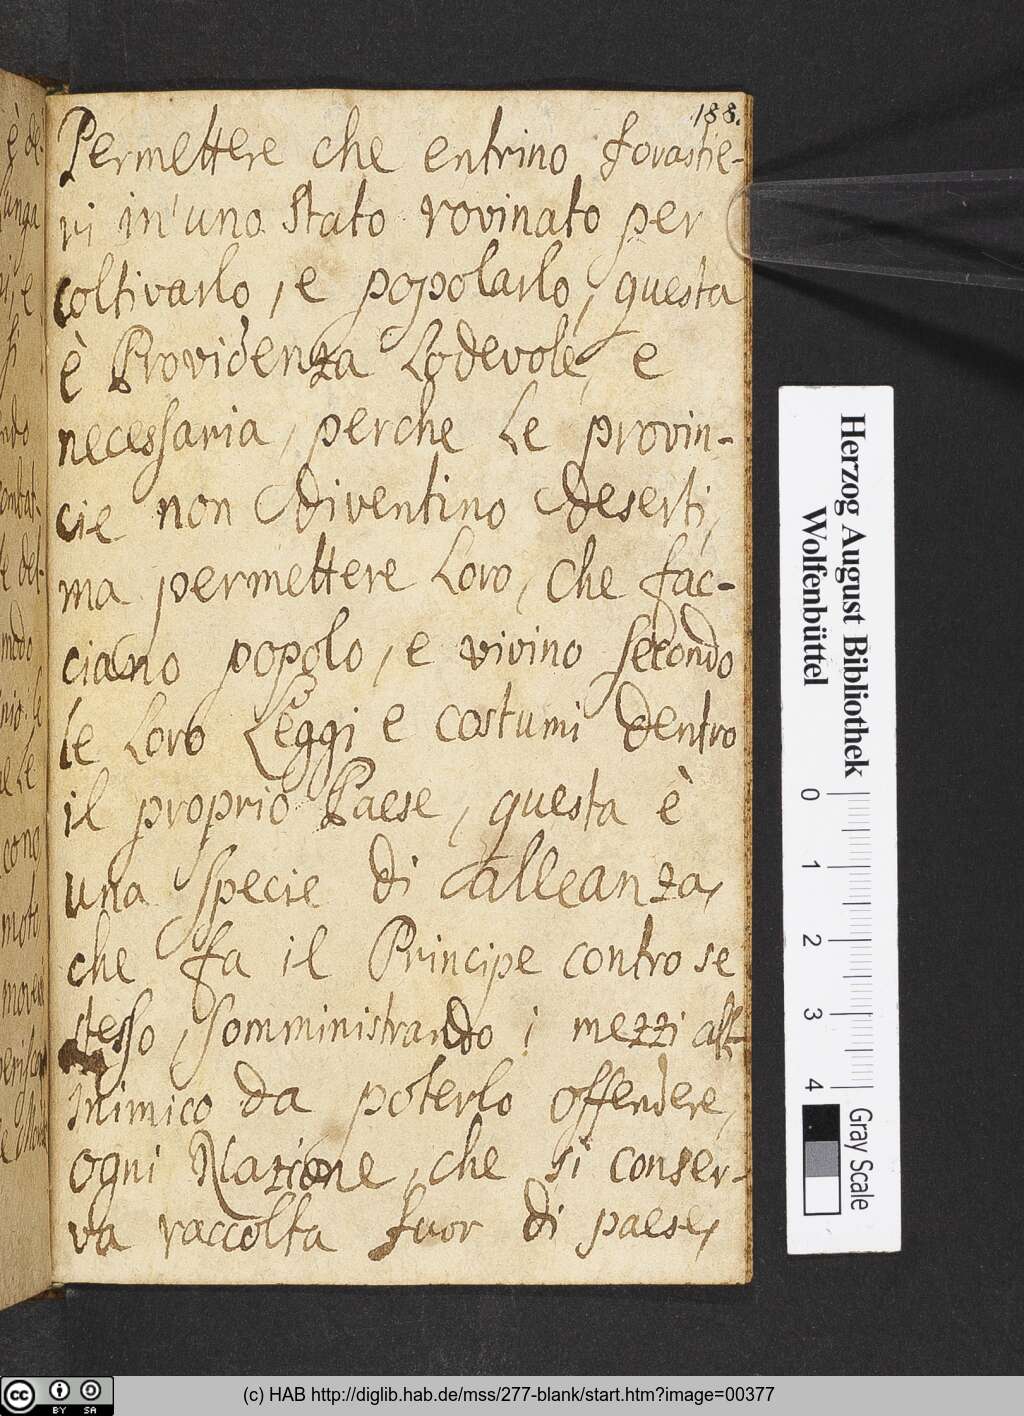 188.
Permettere che entrino forastie-
ri in'uno Stato rovinato per
coltivarlo, e popolarlo, questa
è Providenza Lodevole, e
necessaria, perche Le provin-
cie non diventino deserti,
ma permettere Loro, che fac-
ciano popolo, e vivino secondo
le Loro Leggi e costumi dentro
il proprio Paese, questa è
una specie di alleanza,
che fa il Principe contro se
stesso, somministrando i mezzi all-
inimico da poterlo offendere,
ogni Nazione, che si conser-
va raccolta fuor di paese,
Herzog August Bibliothek
Wolfenbüttel
0 1 2 3 4
Gray Scale
cc BY SA
(c) HAB http://diglib.hab.de/mss/277-blank/start.htm?image=00377